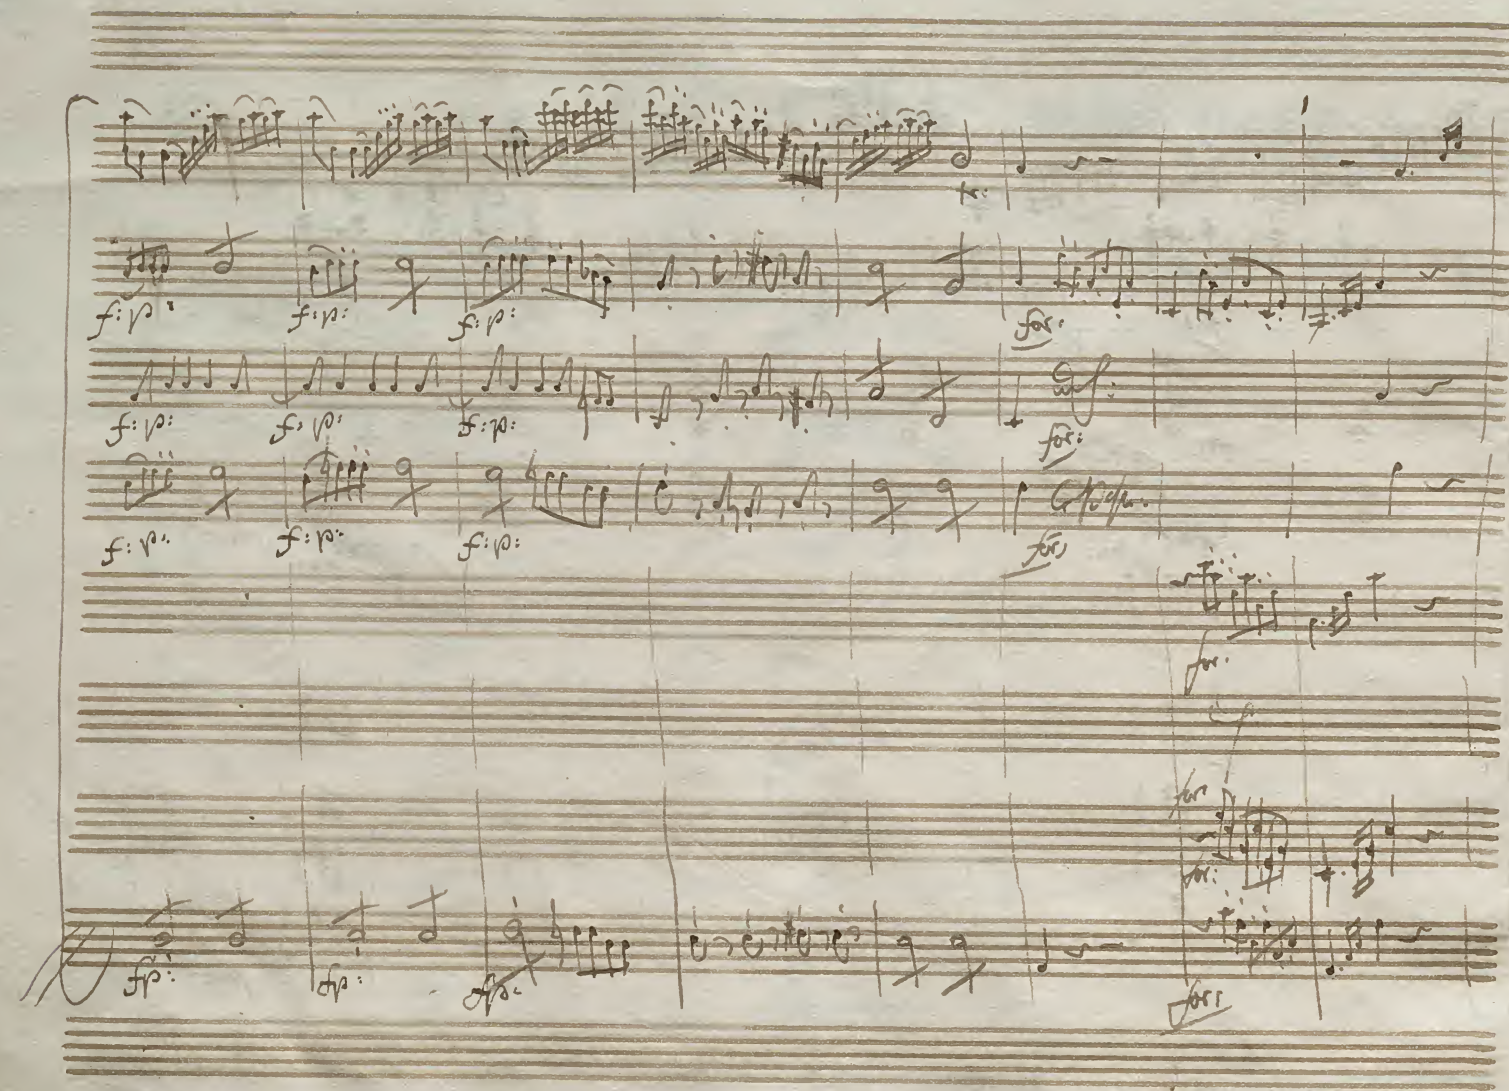 tr:
f: p:
f: p:
f: p:
for:
f: p:
f: p:
f: p:
for:
f: p:
f: p:
f: p:
for:
for:
for
for:
fp:
fp:
fp:
for: